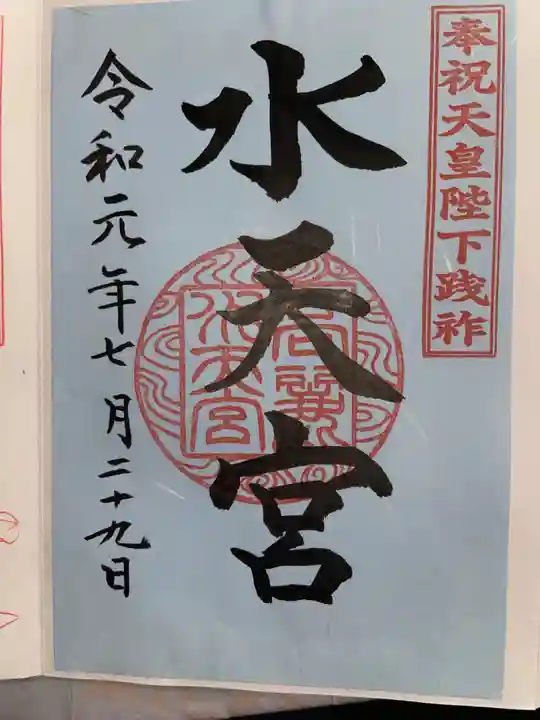 奉祝天皇陛下践祚
水天宮
令和元年七月二十九日